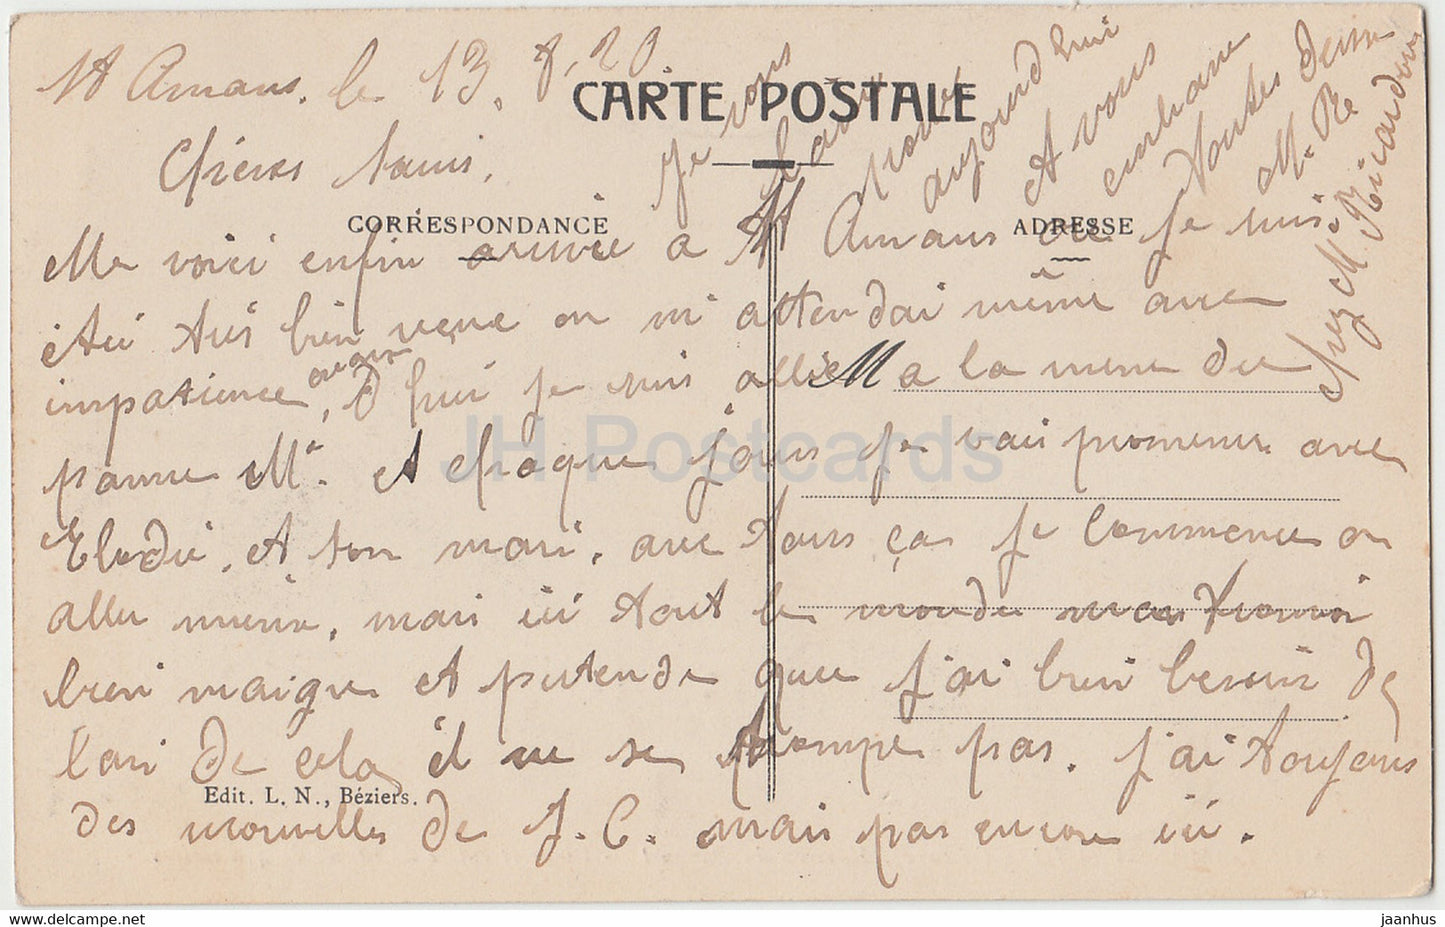 St Amans. le 13. 8. 20.
CARTE POSTALE
Chères Amis,
CORRESPONDANCE
ADRESSE
Me voici enfin arrivée a St Amans ou je suis
étéi trés bien venue on m'attendai même avec
impatience, aujour d'hui je suis allée a la mene du
pauvre Mr. et chaque jours je vais promener avec
Elodie, et son mari, avec tous ças je commence on
aller mieux, mais ici tout le monde mes trouvoi
bien maigre et pretende que j'ai bien besoin de
l'air de cela il ne se trompe pas. j'ai toujours
des nouvelles de J. C. mais pas encore ici.
Edit. L. N., Béziers.
Je vous
aujourd'hui
A vous
embrasse
toutes deux
M. Re
chez M. Ricardou
JH Postcards
jaanhus